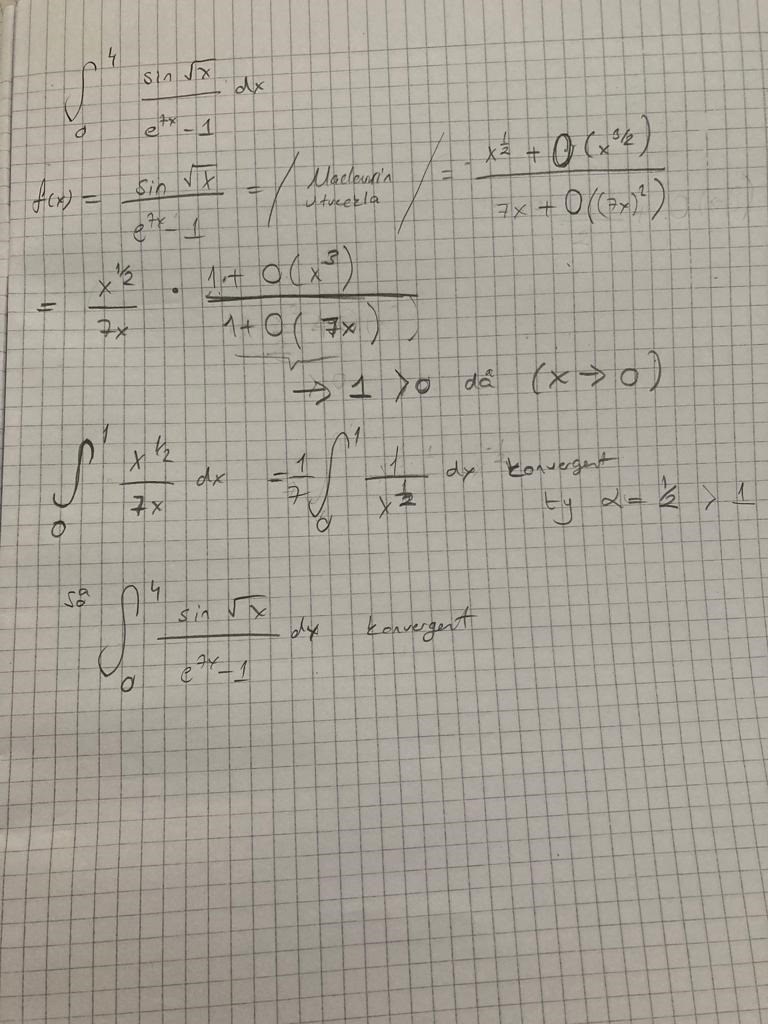 ∫₀⁴ sin √x / (e^{7x} - 1) dx
f(x) = sin √x / (e^{7x} - 1) = / Maclaurin utveckla / = (x^{1/2} + O(x^{3/2})) / (7x + O((7x)^2))
= x^{1/2} / 7x · (1 + O(x^3)) / (1 + O(7x))
→ 1 > 0 då (x → 0)
∫₀¹ x^{1/2} / 7x dx = 1/7 ∫₀¹ 1 / x^{1/2} dx konvergent
ty α = 1/2 > 1
så ∫₀⁴ sin √x / (e^{7x} - 1) dx konvergent